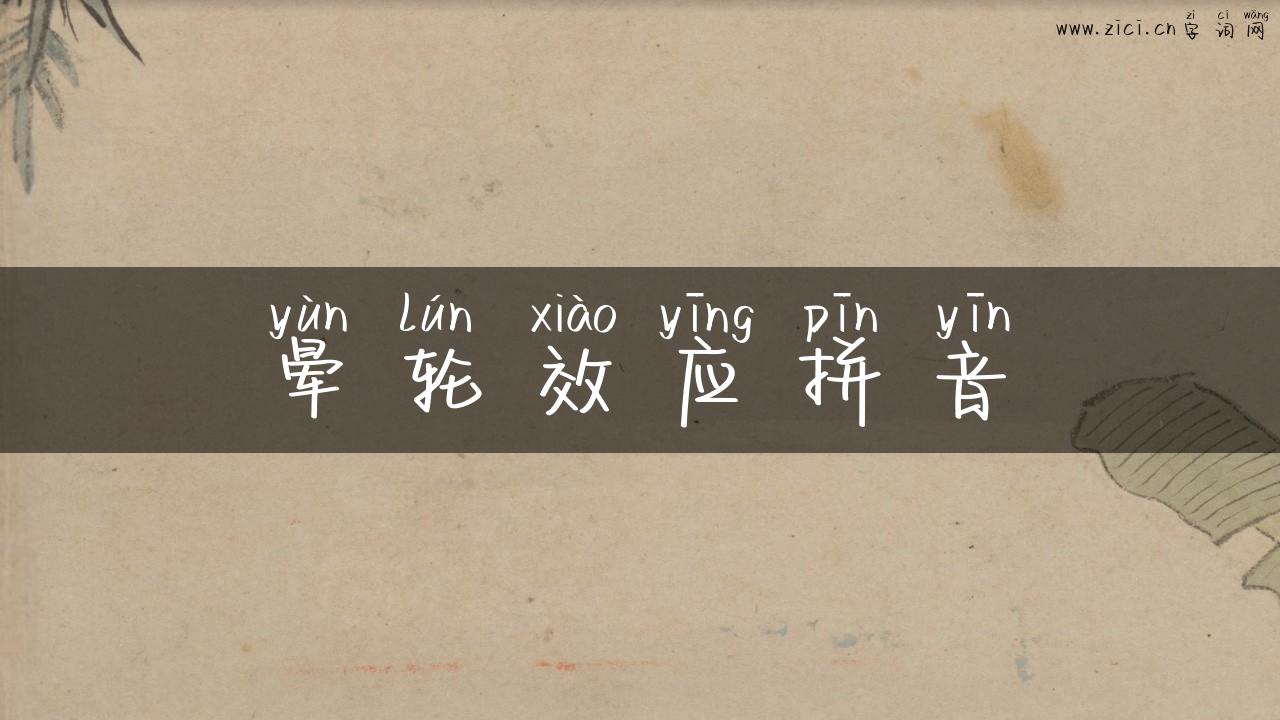 zì cí wǎng
www.zici.cn 字词网
yùn lún xiào yīng pīn yīn
晕轮效应拼音